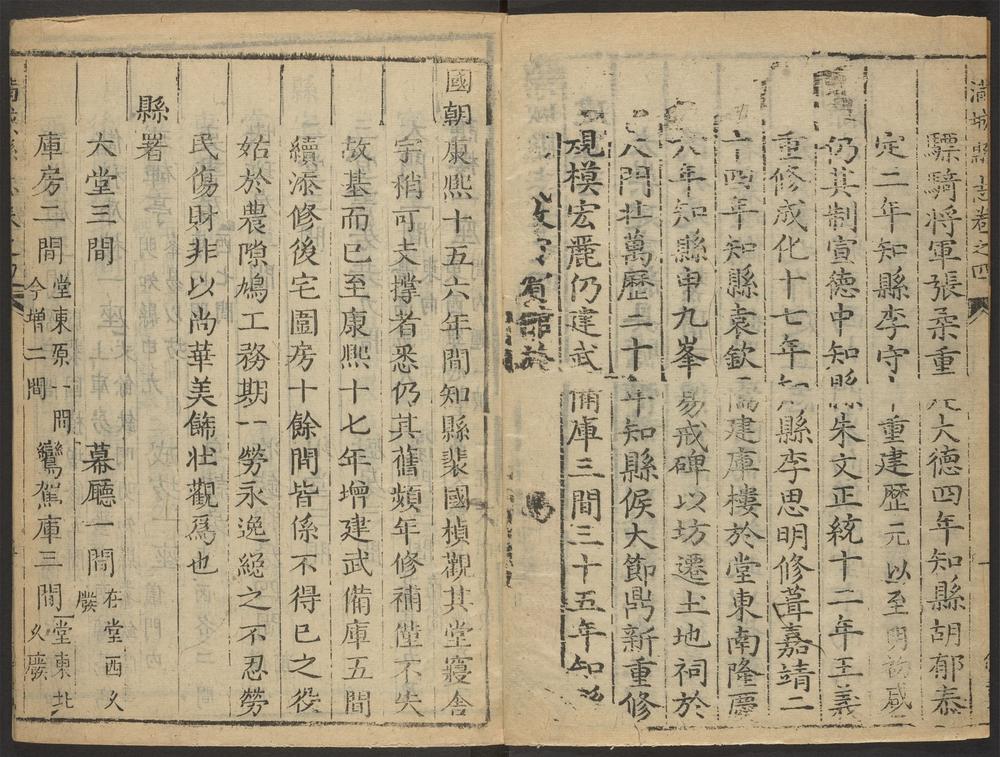 滿城縣志卷之四
驃騎將軍張柔重 大德四年知縣胡郁泰
定二年知縣李守 重建歷元以至明初咸
仍其制宣德中知縣朱文正統十二年王義
重修成化十七年知縣李思明修葺嘉靖二
十四年知縣袁欽 建庫樓於堂東南隆慶
六年知縣申九峯易戒碑以坊遷土地祠於
八門 萬歷二十年知縣侯大節鼎新重修
規模宏麗仍建武備庫三間三十五年知
賓館於
國朝康熙十五六年間知縣裴國楨觀其堂寢舍
宇稍可支撐者悉仍其舊頻年修補僅不失
故基而已至康熙十七年增建武備庫五間
續添修後宅圍房十餘間皆係不得已之役
姑於農隙鳩工務期一勞永逸總之不忍勞
民傷財非以尚華美飾壯觀爲也
縣署
大堂三間 幕廳一間在堂西久廢
庫房二間堂東原一間今增二間 鸞駕庫三間堂東北久廢